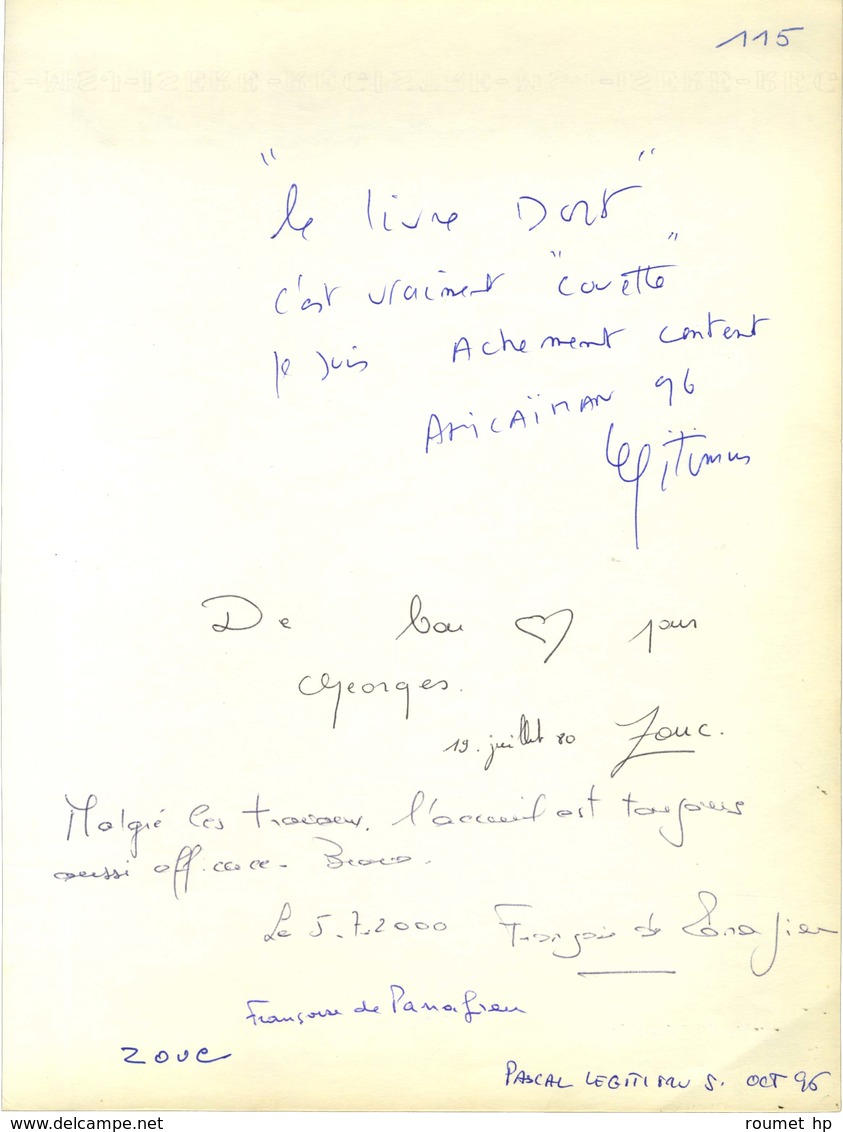 115
"le livre Dort"
c'est vraiment "couette"
je suis Achement content
AMICAÏMAN 96
Legitimus
De bon ♡ pour
Georges.
19. juillet 80 Zouc.
Malgré les travaux, l'accueil est toujours
aussi efficace. Bravo.
Le 5.7.2000 Françoise de Panafieu
Françoise de Panafieu
ZOUC
PASCAL LEGITIMUS. OCT 96
delcampe.net
roumet hp